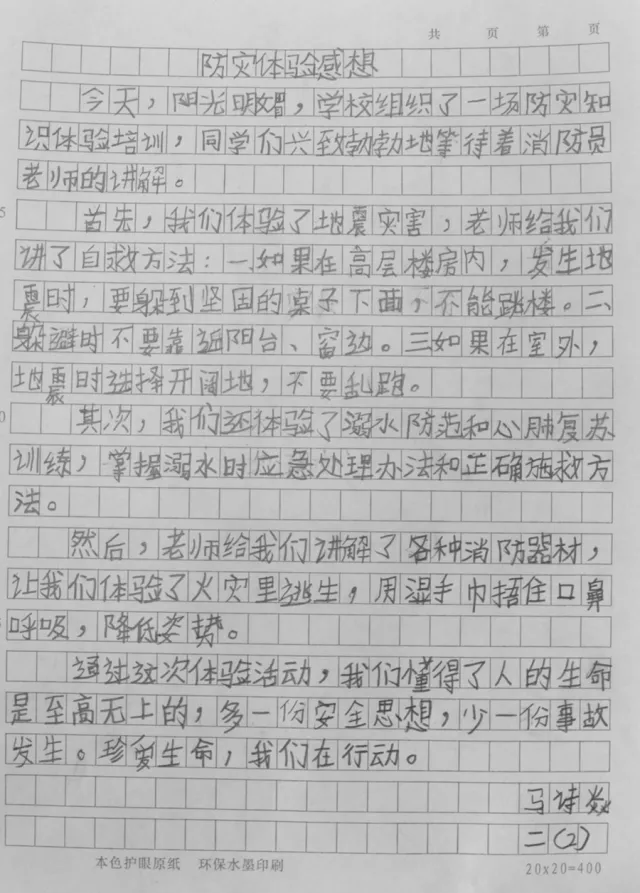 共 页 第 页
防灾体验感想
今天，阳光明媚，学校组织了一场防灾知
识体验培训，同学们兴致勃勃地等待着消防员
老师的讲解。
5
首先，我们体验了地震灾害，老师给我们
讲了自救方法：一如果在高层楼房内，发生地
震时，要躲到坚固的桌子下面，不能跳楼。二
躲避时不要靠近阳台、窗边。三如果在室外，
地震时选择开阔地，不要乱跑。
0
其次，我们还体验了溺水防范和心肺复苏
训练，掌握溺水时应急处理办法和正确施救方
法。
然后，老师给我们讲解了各种消防器材，
让我们体验了火灾里逃生，用湿手巾捂住口鼻
呼吸，降低姿势。
通过这次体验活动，我们懂得了人的生命
是至高无上的，多一份安全思想，少一份事故
发生。珍爱生命，我们在行动。
马诗
二(2)
本色护眼原纸 环保水墨印刷 20x20=400